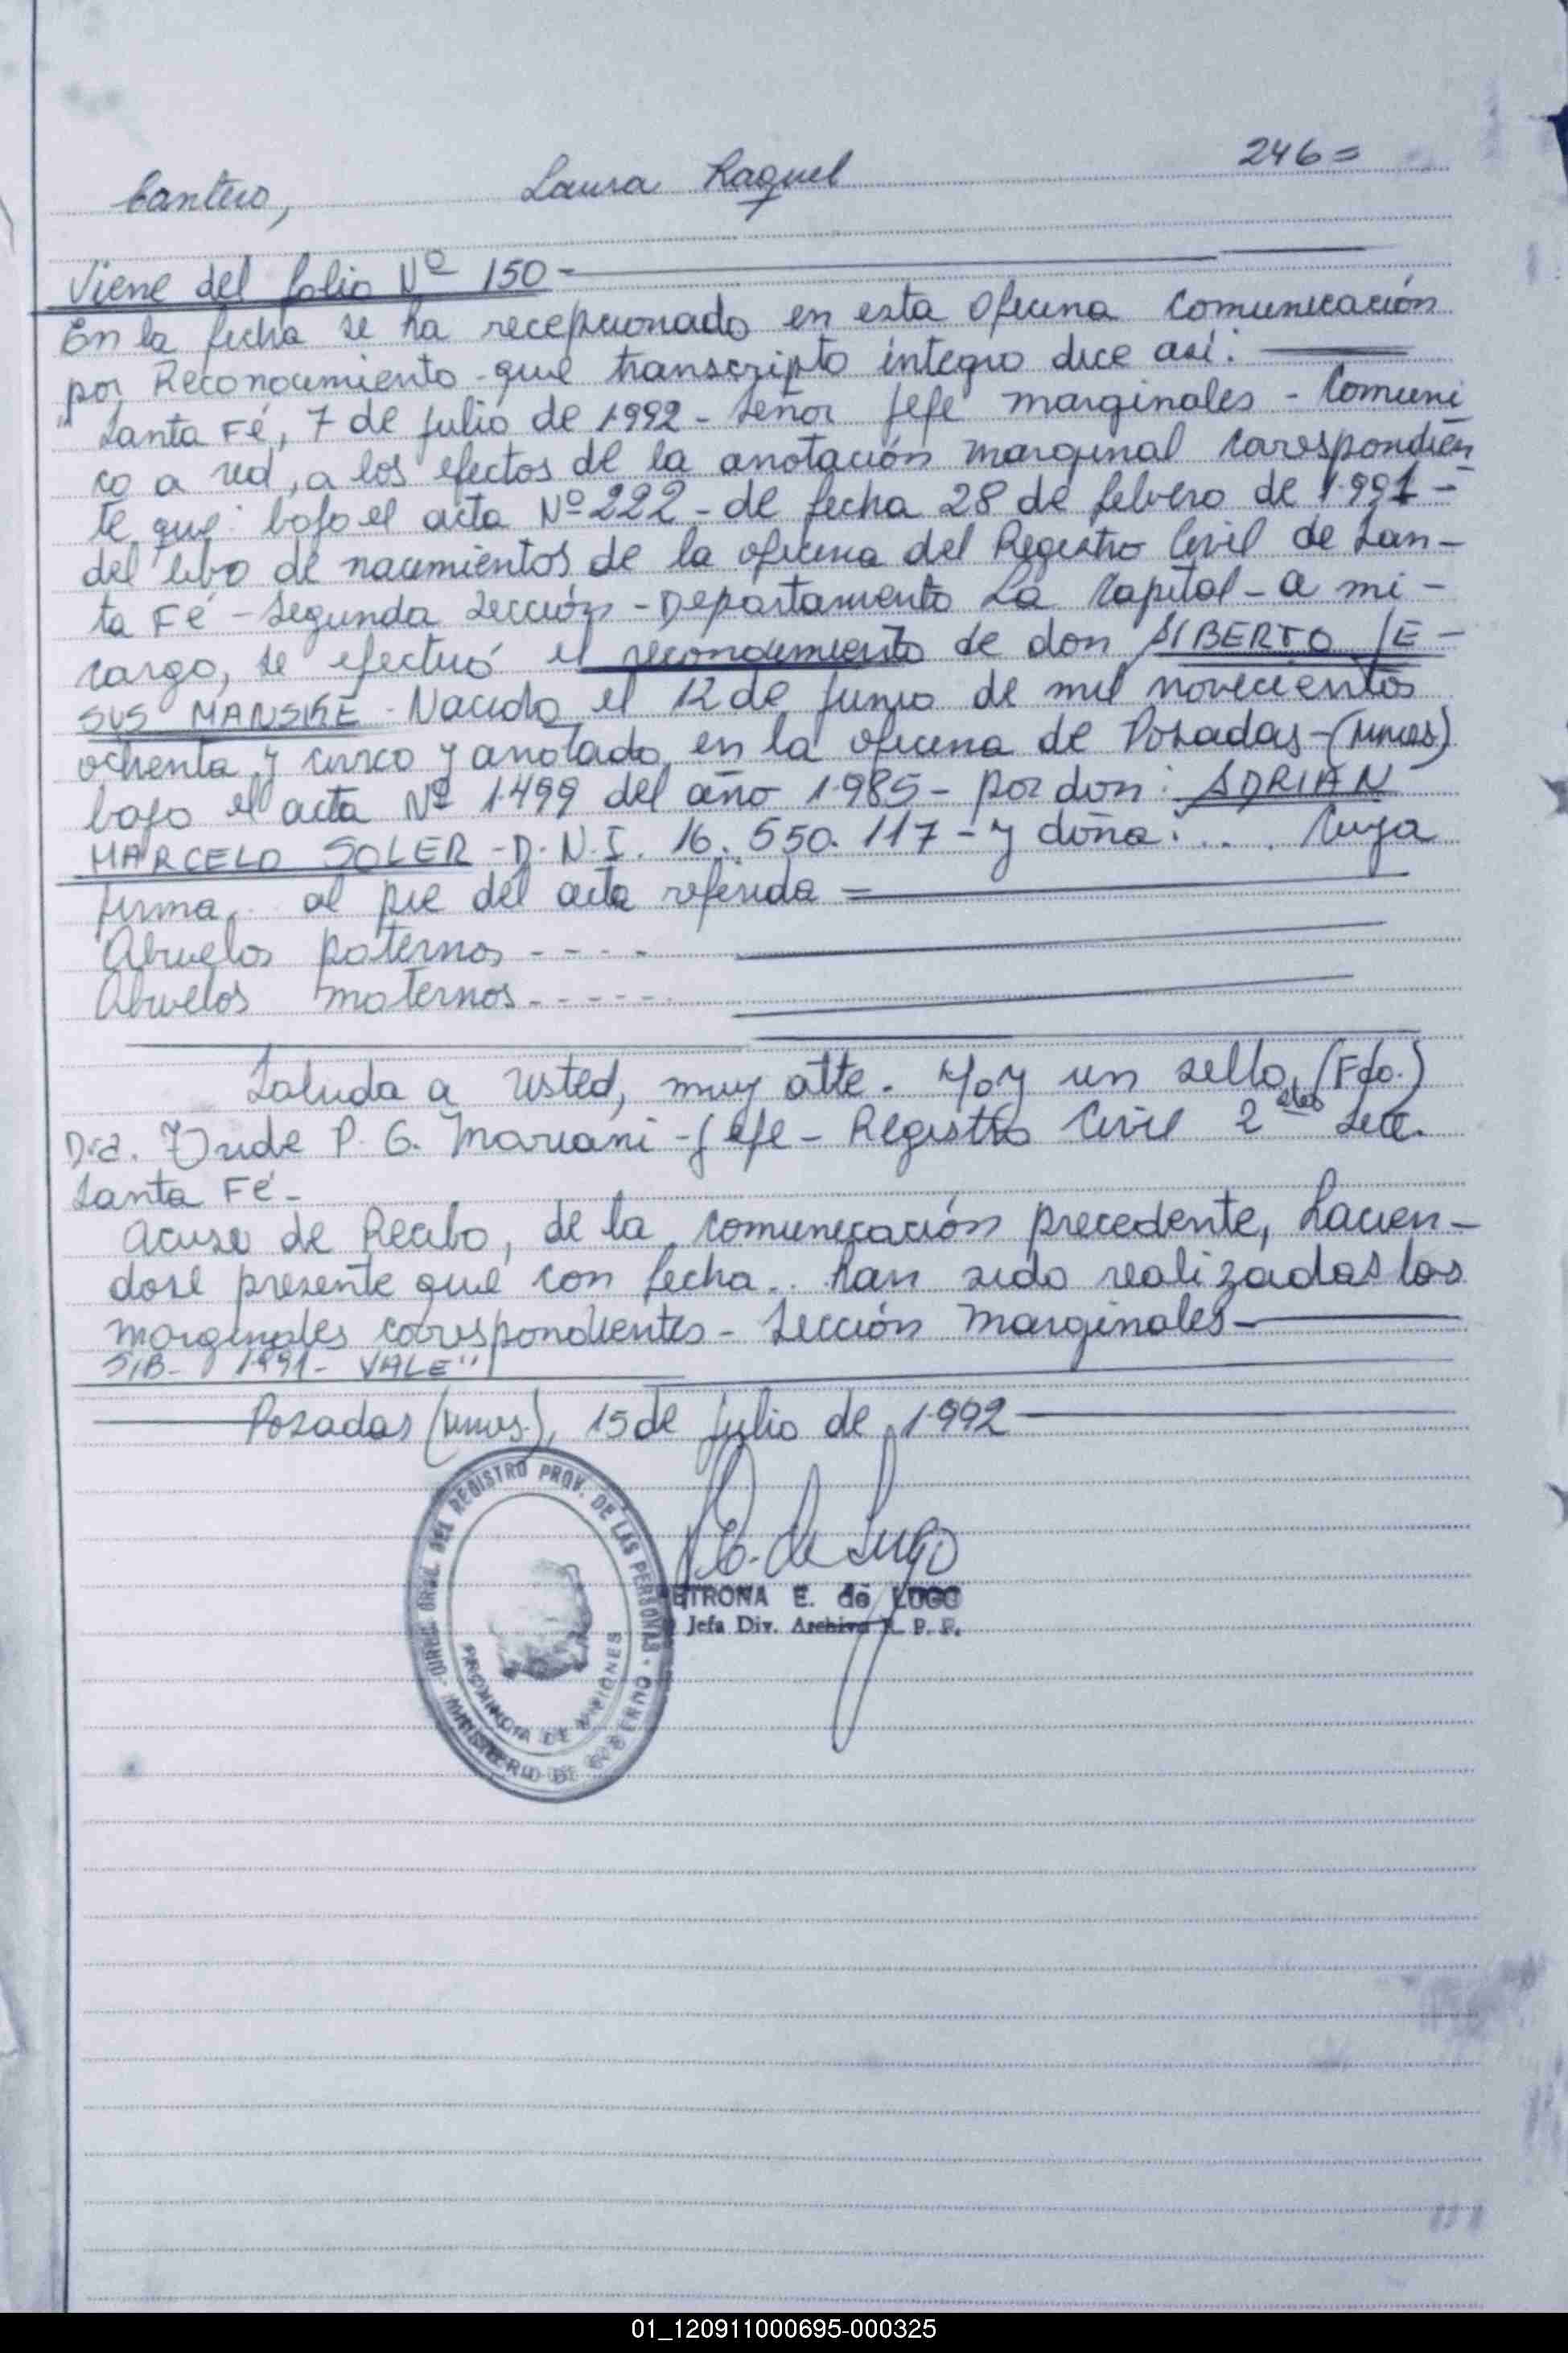 246=
Cantero, Laura Raquel
Viene del folio Nº 150-
En la fecha se ha recepcionado en esta Oficina Comunicación
por Reconocimiento - que transcripto íntegro dice así:
"Santa Fé, 7 de Julio de 1992 - Señor Jefe marginales - Comuni
co a Ud, a los efectos de la anotación marginal correspondien
te que: bajo el acta Nº 222 - de fecha 28 de febrero de 1.991 -
del libro de nacimientos de la oficina del Registro Civil de San-
ta Fé - Segunda Sección - Departamento La Capital - a mi -
cargo, se efectuó el reconocimiento de don SIBERTO JE-
SUS MANSKE - Nacido el 12 de Junio de mil novecientos
ochenta y cinco y anotado en la oficina de Posadas - (Mnes)
bajo el acta Nº 1.499 del año 1.985 - por don: ADRIAN
MARCELO SOLER - D.N.I. 16.550.117 - y doña: ... Cuya
firma.. al pie del acta referida =
Abuelos paternos - - - -
Abuelos maternos - - - - -
Saluda a Usted, muy atte. Hay un sello (Fdo.)
Dra. P. G. Mariani - Jefe - Registro Civil 2da Secc.
Santa Fé -
Acuse de Recibo, de la comunicación precedente, hacien-
dose presente que con fecha.. han sido realizadas las
marginales correspondientes - Sección Marginales -
S/B - 1991 - VALE"
Posadas (Mnes.), 15 de Julio de 1.992
DIREC. GRAL. DEL REGISTRO PROV. DE LAS PERSONAS -
MINISTERIO DE GOBIERNO
PROVINCIA DE MISIONES
P.E. de Lugo
ETRONA E. de LUGO
Jefa Div. Archivo R. P. P.
01_120911000695-000325